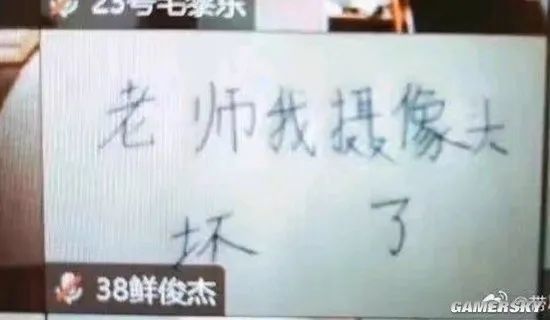 23号毛黎东
老师我摄像头
坏 了
38鲜俊杰
GAMERSKY